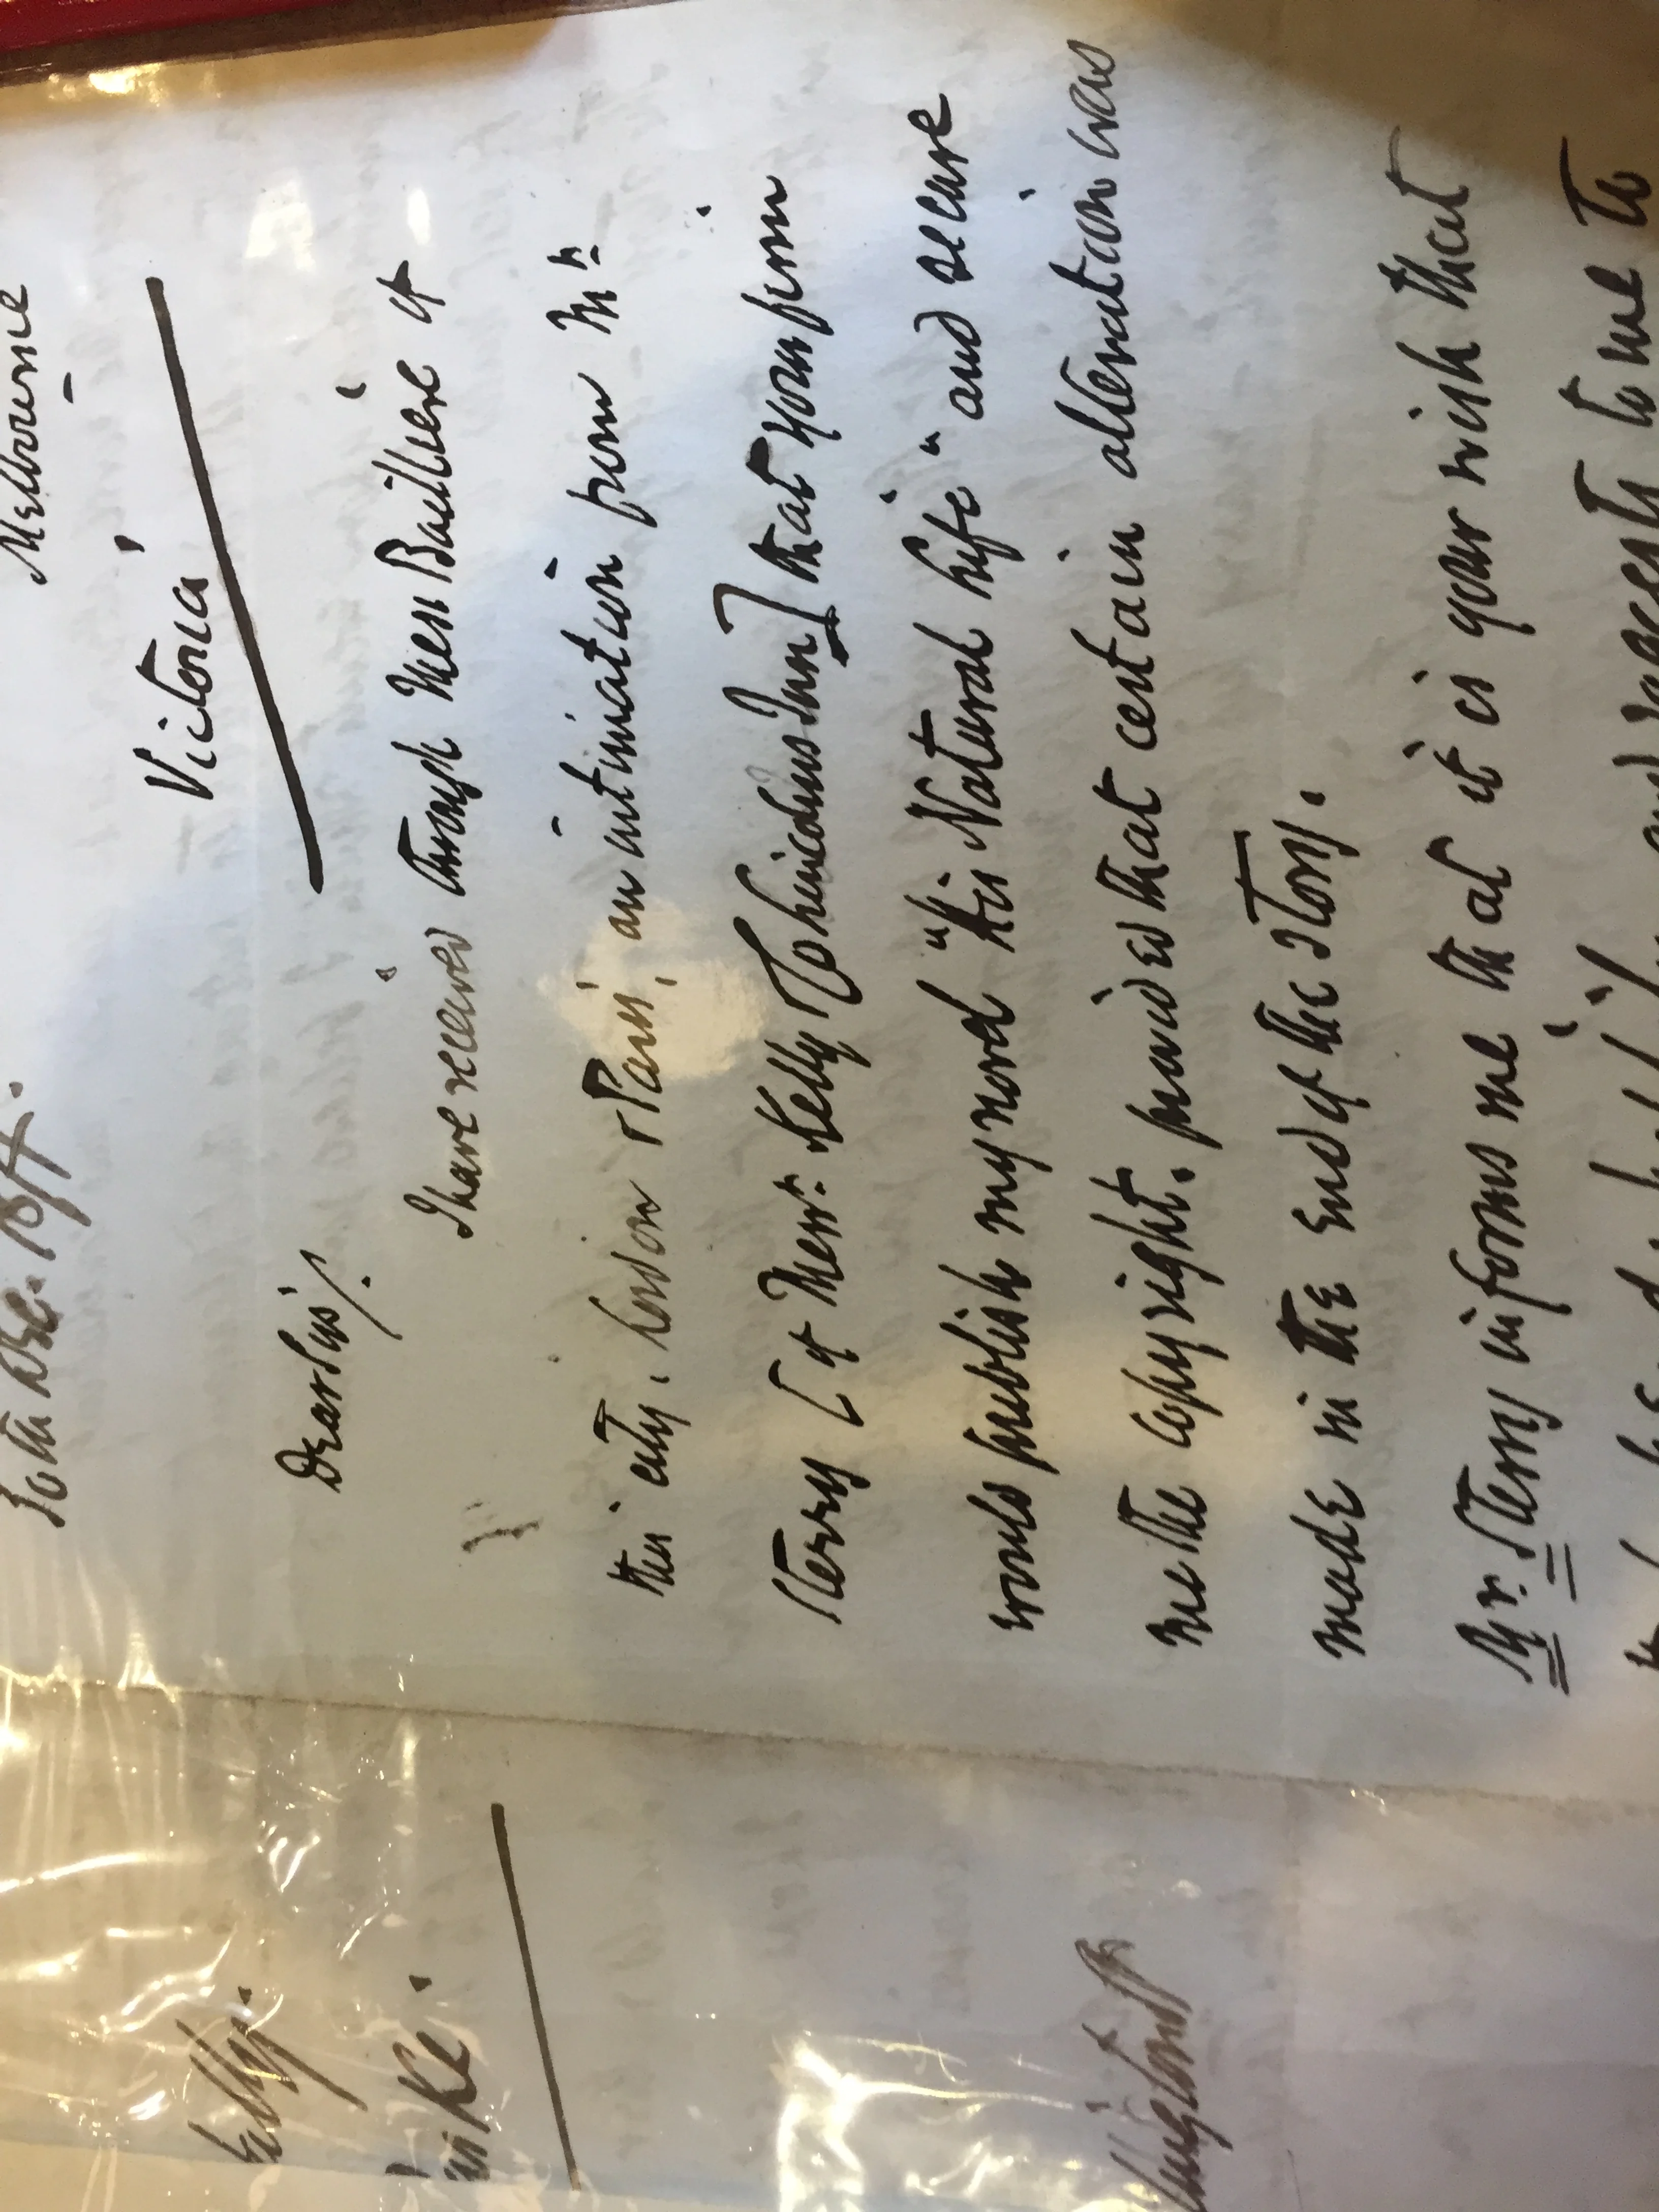 Melbourne
Victoria
Dear Sirs/.
I have received through Messrs Bailliere of
this city, London & Paris, an intimation from Mr
Sterry [of Messrs Kelly Inn] that your firm
would publish my novel "His Natural Life" and secure
me the copyright. provided that certain alteration was
made in the end of the story.
Mr. Sterry informs me that it is your wish that
to me to